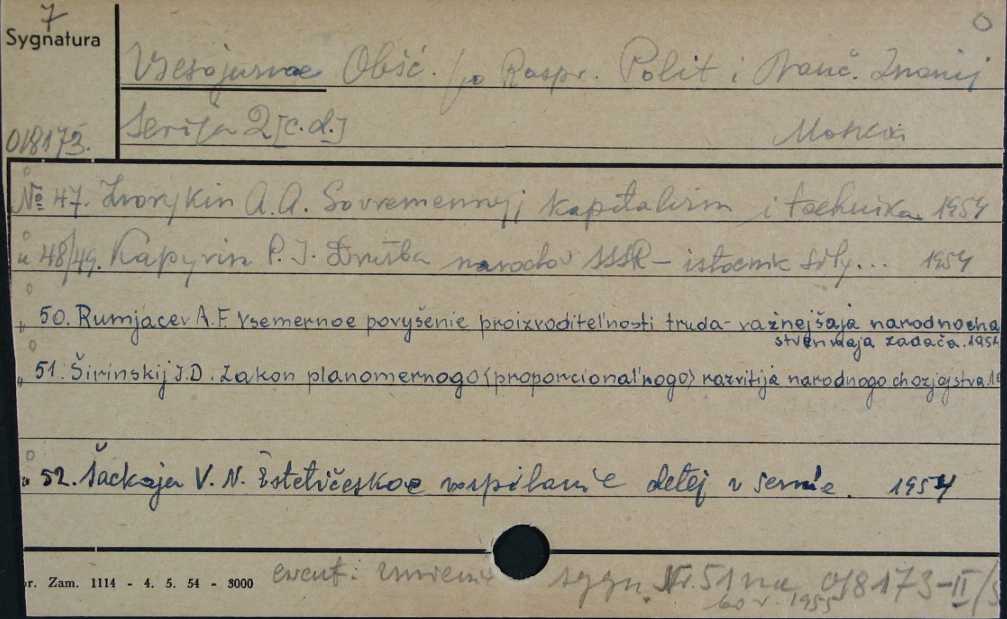 7
Sygnatura
Vsesojuznoe Obšč. po Raspr. Polit i Nauč. Znanij
018173.
Serija 2 [c.d.] Moskva
№ 47. Zvorykin A.A. Sovremennyj kapitalizm i technika 1954
" 48/49. Kapyrin P. I. Družba narodov SSSR - istočnik siły... 1954
" 50. Rumjacev A.F. Vsemernoe povyšenie proizvoditel'nosti truda - važnejšaja narodnocha
stvennaja zadača. 1954
" 51. Širinskij I.D. Zakon planomernogo (proporcional'nogo) razvitija narodnogo chozjajstva. 19
" 52. Šackaja V. N. Ėstetičeskoe vospitanie detej v sem'e. 1954
r. Zam. 1114 - 4. 5. 54 - 3000 ewent. zmienić sygn. Nr. 51 na 018173-II/5
bo r. 1955